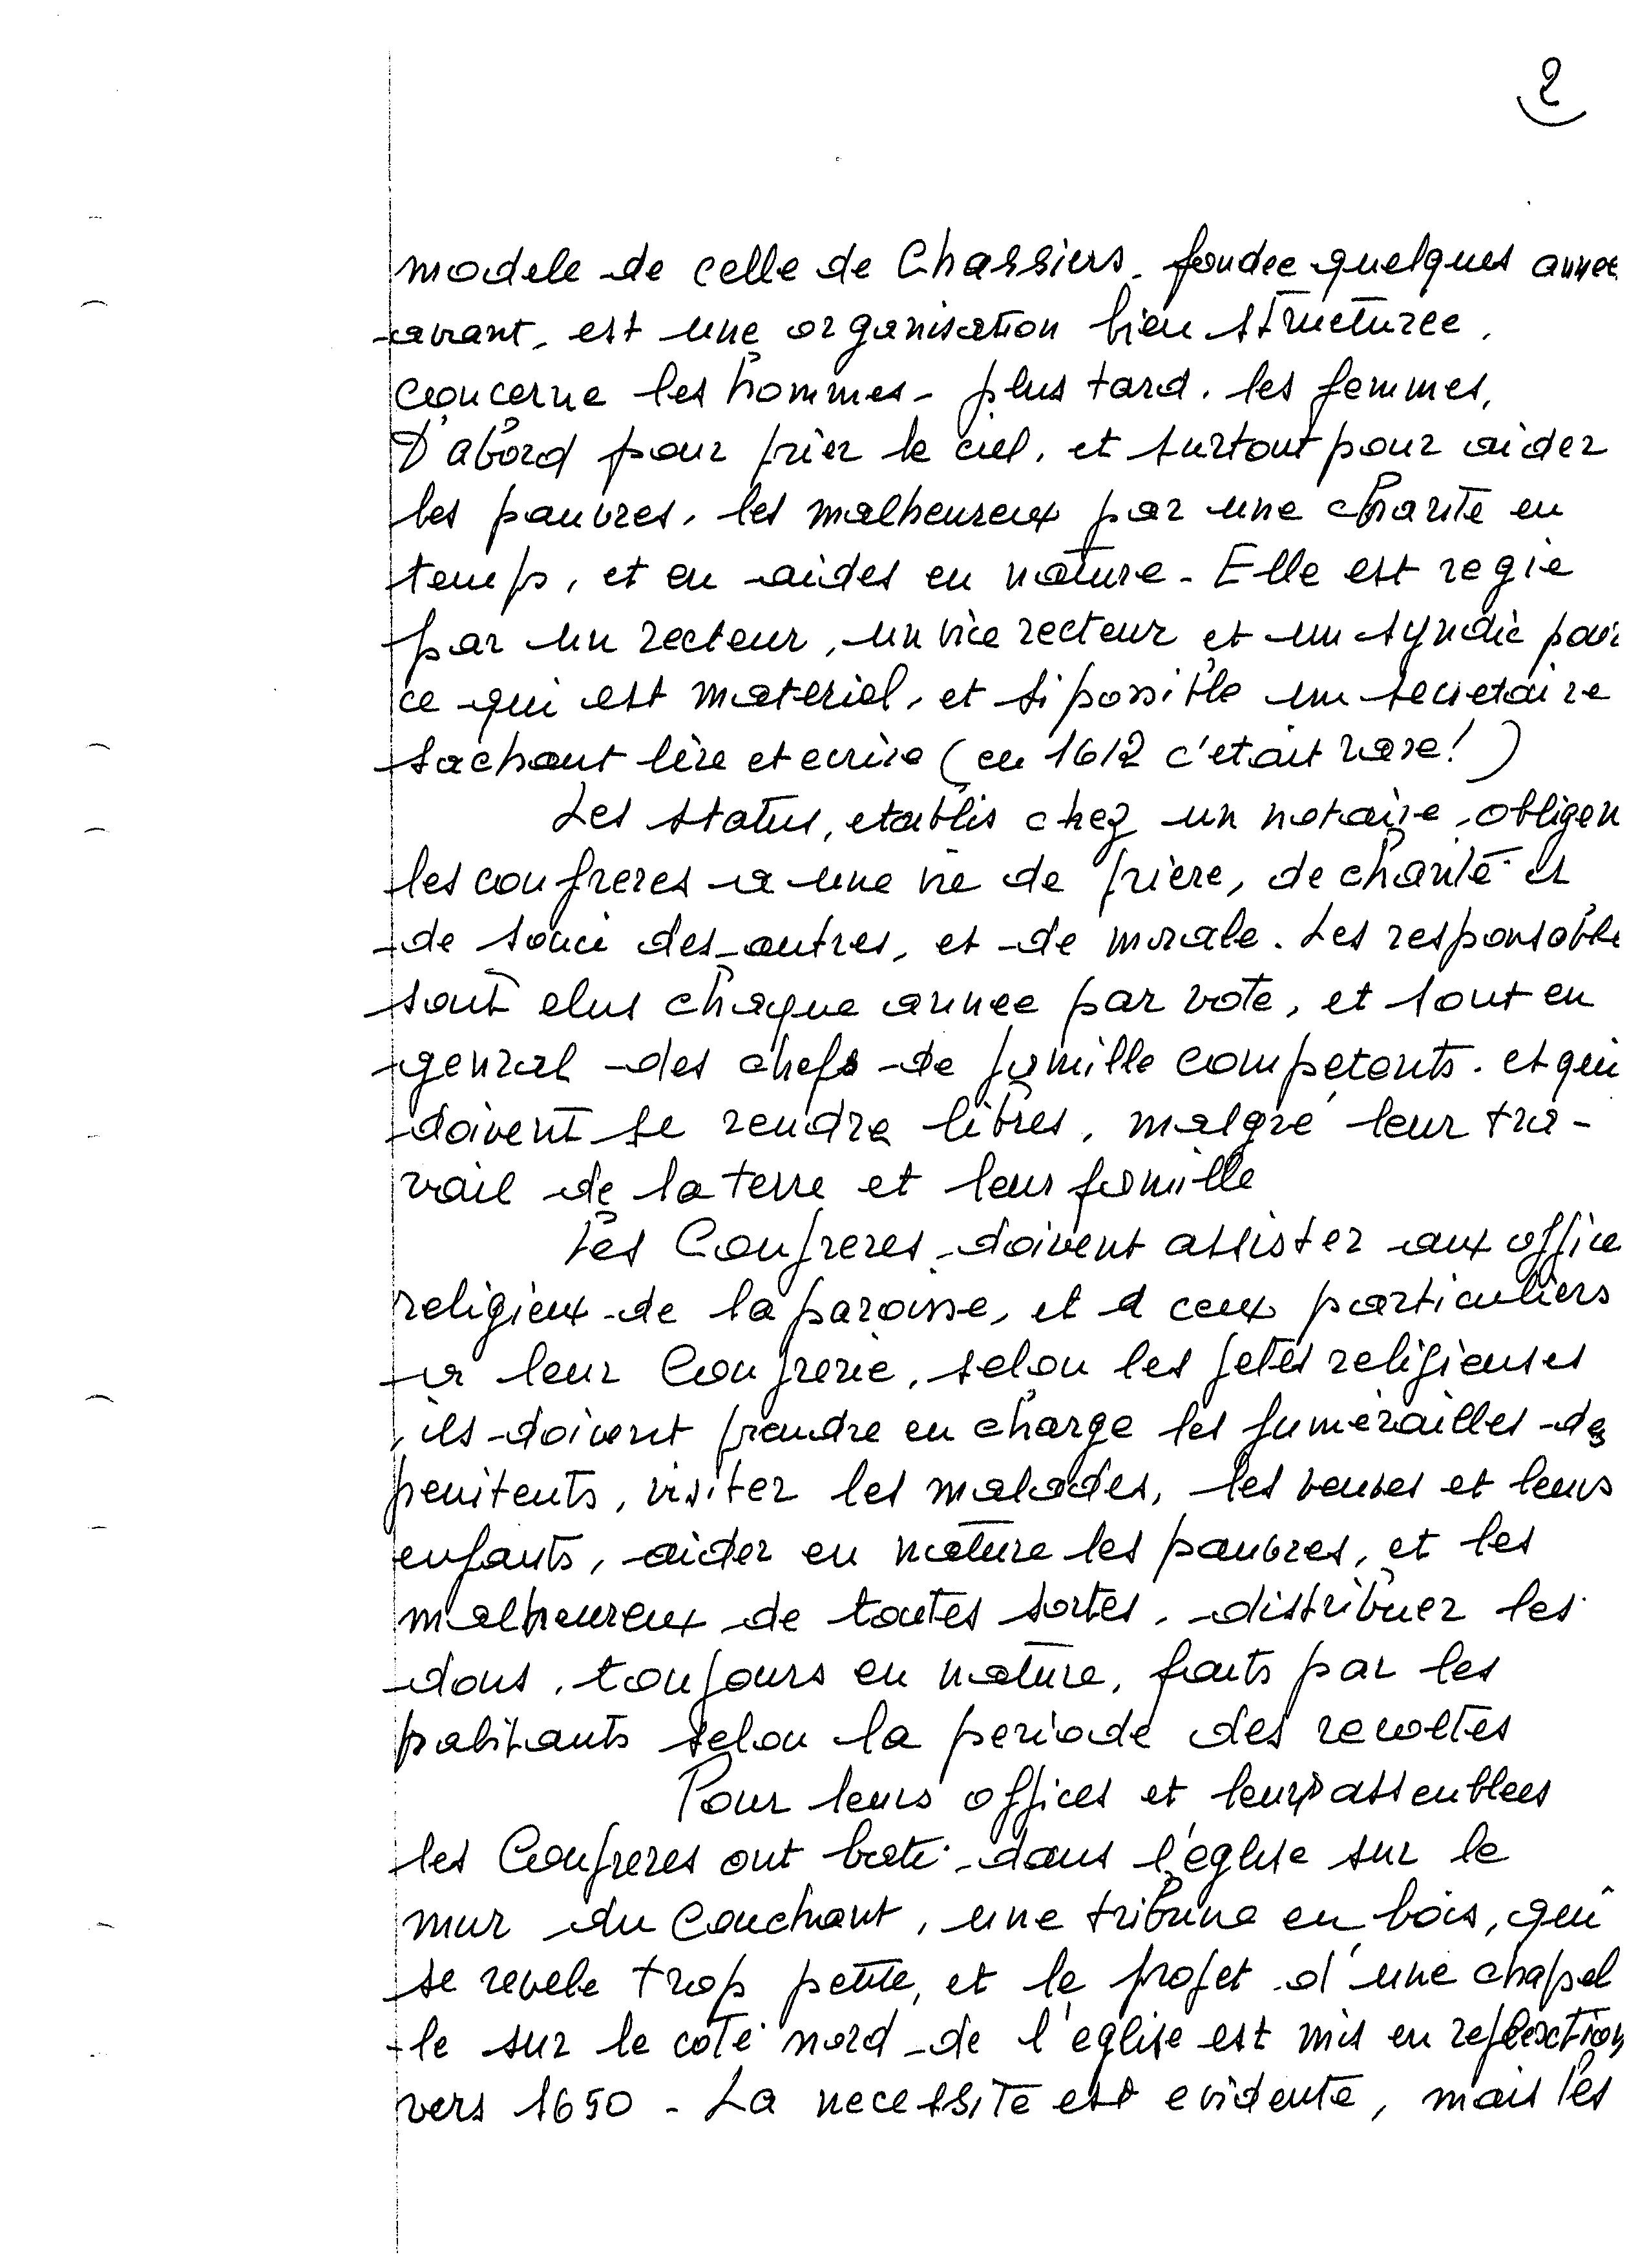 2
modele de celle de Chassiers. fondee quelques annee
avant, est une organisation bien structuree,
concerne les hommes - plus tard, les femmes,
D'abord pour prier le ciel, et surtout pour aider
les pauvres, les malheureux par une charite en
temps, et en aides en nature - Elle est regie
par un recteur, un vice recteur et un syndic pour
ce qui est materiel, et si possible un secretaire
sachant lire et ecrire (en 1612 c'etait rare!)
Les status, etablis chez un notaire, obligen
les confreres a une vie de priere, de charité et
de souci des autres, et de morale. Les responsable
sont elus chaque annee par vote, et sont en
genral des chefs de famille competents. et qui
doivent se rendre libres, malgré leur tra-
vail de la terre et leur famille
Les Confreres doivent assister aux office
religieux de la paroisse, et a ceux particuliers
a leur Confrerie, selon les fetes religieuses
, ils doivent prendre en charge les funerailles des
penitents, visiter les malades, les veuves et leurs
enfants, aider en nature les pauvres, et les
malheureux de toutes sortes, distribuer les
dons, toujours en nature, faits par les
habitants selon la periode des recoltes
Pour leurs offices et leurs assemblees
les Confreres ont bati dans l'eglise sur le
mur du Couchant, une tribune en bois, qui
se revele trop petite, et le projet d'une chapel
le sur le coté nord de l'eglise est mis en reflexction
vers 1650 - La necessite est evidente, mais les